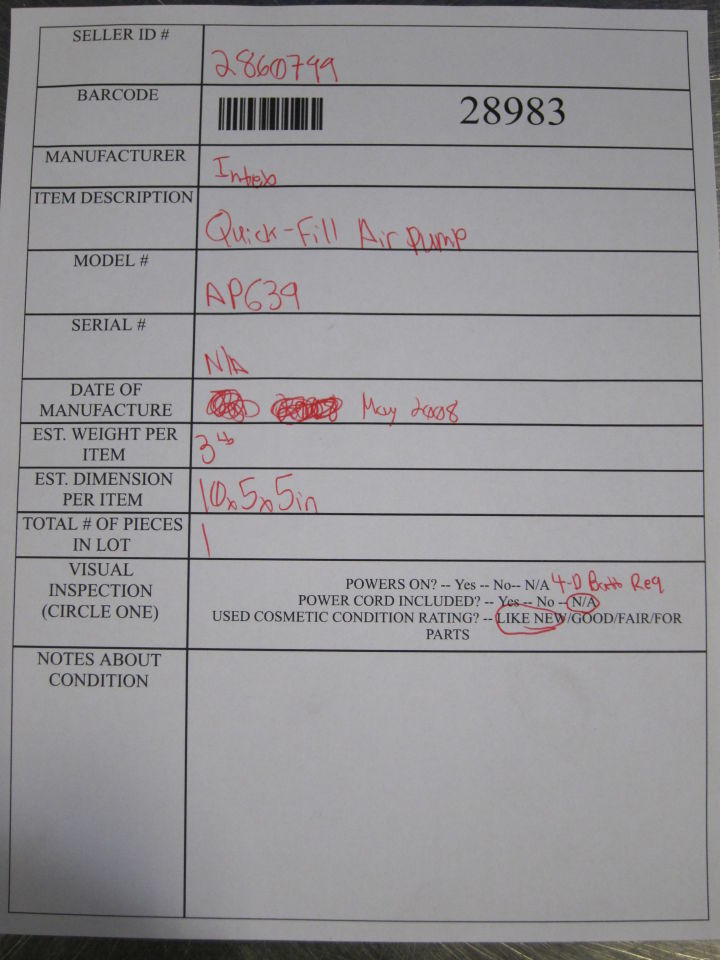 SELLER ID #
2860799
BARCODE
28983
MANUFACTURER
Intex
ITEM DESCRIPTION
Quick-Fill Air Pump
MODEL #
AP639
SERIAL #
N/A
DATE OF
MANUFACTURE
May 2008
EST. WEIGHT PER
ITEM
3 lb
EST. DIMENSION
PER ITEM
10x5x5in
TOTAL # OF PIECES
IN LOT
1
VISUAL
INSPECTION
(CIRCLE ONE)
POWERS ON? -- Yes -- No-- N/A 4-D Batt Req
POWER CORD INCLUDED? -- Yes -- No -- N/A
USED COSMETIC CONDITION RATING? -- LIKE NEW/GOOD/FAIR/FOR
PARTS
NOTES ABOUT
CONDITION